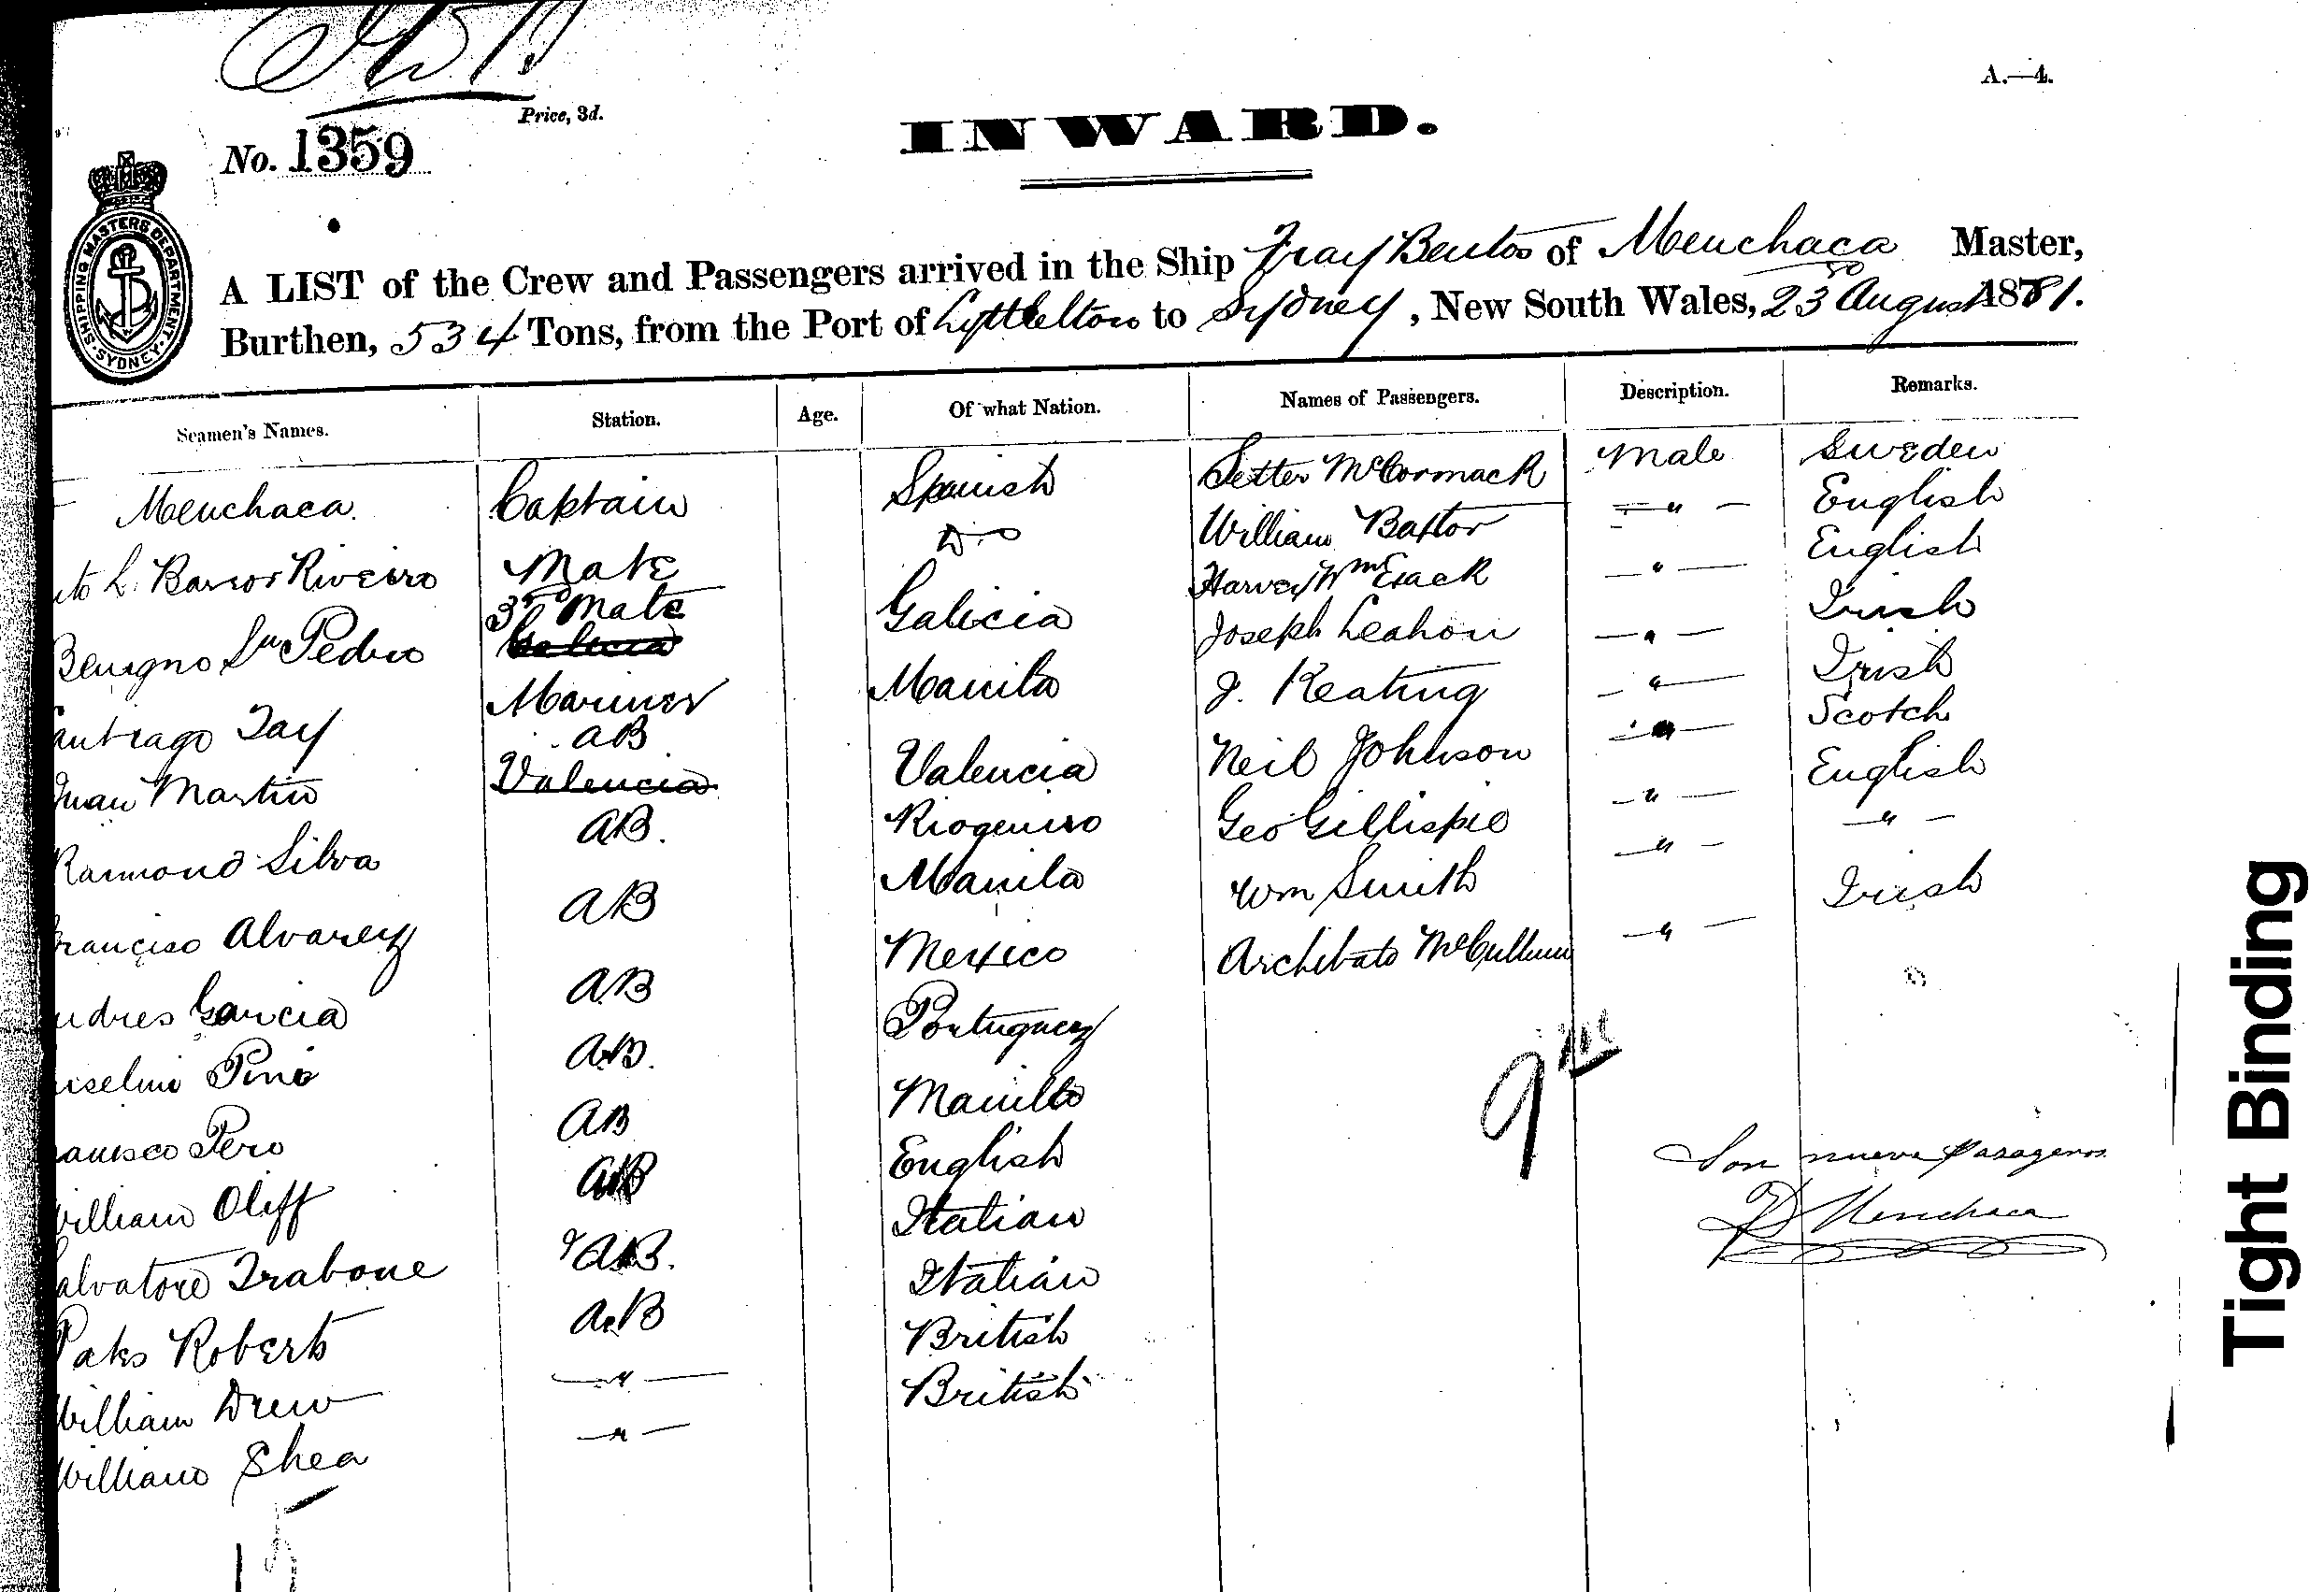 Price, 3d.
A.—4.
No. 1359
INWARD.
SHIPPING MASTERS DEPARTMENT · SYDNEY ·
A LIST of the Crew and Passengers arrived in the Ship Fray Bentos of Menchaca Master,
Burthen, 534 Tons, from the Port of Lyttelton to Sydney, New South Wales, 23 August 1881.
Seamen's Names. Station. Age. Of what Nation. Names of Passengers. Description. Remarks.
Menchaca. Captain Spanish Setter McCormack Male Sweden
L. Barcos Riveiro Mate Do William Baxtor " English
Benigno Sn Pedro 3rd Mate Galicia Galicia Harvey Wm " English
antiago Tay Mariner Manila Joseph Leahon " Irish
Juan Martin AB Valencia Valencia J. Keating " Irish
Raimond Silva AB. Riogeniro Neil Johnson " Scotch
Francisco Alvarez AB Manila Geo Gillispie " English
ndres Garcia AB Mexico Wm Smith " "
nselmi Pino AB. Portuguez Archibald McCullum " Irish
rancisco Pero AB Manilla
William Oliff AB English
Salvatore Trabone AB. Italian
Paks Robert AB Italian
William Drew " British
William Shea " British
9
Son nueve pasageros
D Menchaca
Tight Binding